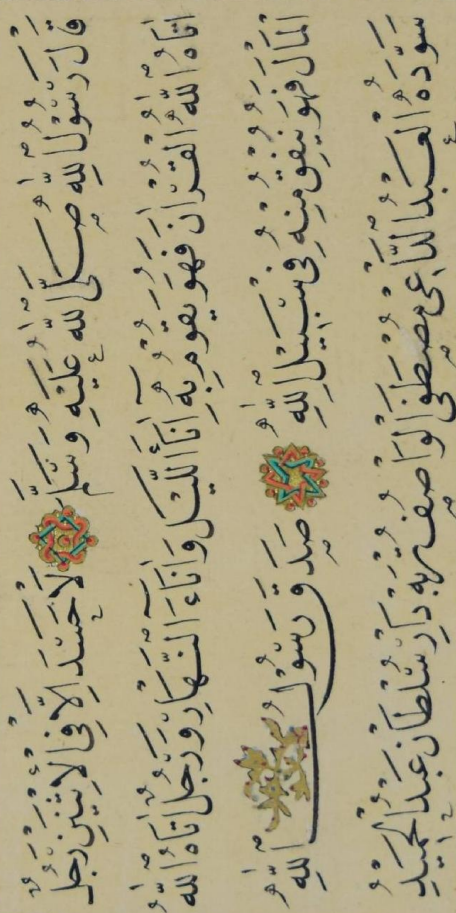 قَالَ رَسُوْلُ اللّٰهِ صَلَّى اللّٰهُ عَلَيْهِ وَسَلَّمَ لَاحَسَدَ اِلَّا فِى الْاِثْنَيْنِ رَجُلٌ
اٰتَاهُ اللّٰهُ الْقُرْاٰنَ فَهُوَ يَقُوْمُ بِهِ آنَاءَ اللَّيْلِ وَاٰنَاءَ النَّهَارِ وَرَجُلٌ اٰتَاهُ اللّٰهُ
الْمَالَ فَهُوَ يُنْفِقُ مِنْهُ فِى سَبِيْلِ اللّٰهِ صَدَقَ رَسُوْلُ اللّٰهِ
سَوَّدَهُ الْعَبْدُ الدَّاعِى مُصْطَفَى الْوَاصِفْ دَارِ سُلْطَانْ عَبْدُ الْحَمِيْدِ